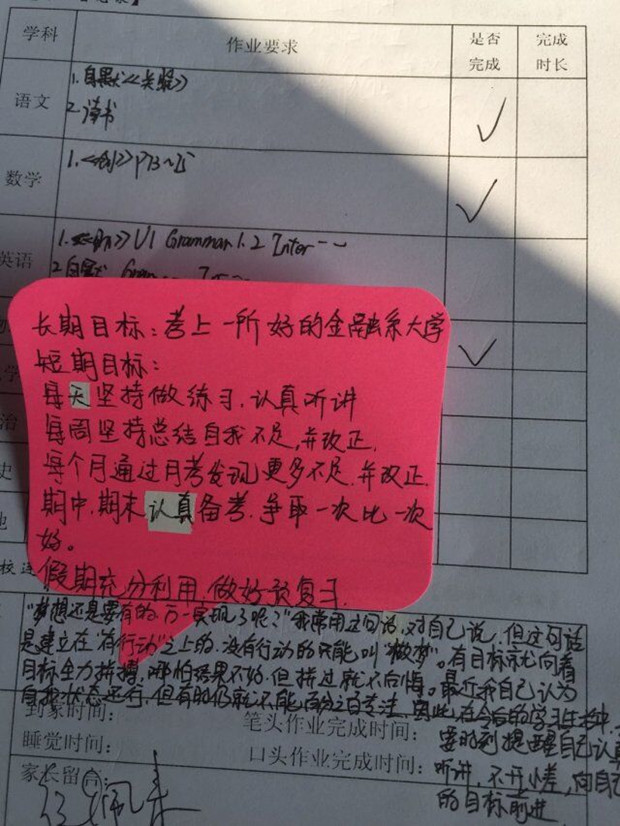 学科 作业要求 是否完成 完成时长
语文 1.自默《关雎》
2.读书
✓
数学 1.《创》P13~15
✓
英语 U1 Grammar 1.2 Inter--
2.自默
✓
长期目标：考上一所好的金融系大学
短期目标：
每天坚持做练习，认真听讲
每周坚持总结自我不足，并改正.
每个月通过月考发现更多不足，并改正.
期中，期末认真备考，争取一次比一次
好。
假期充分利用，做好预复习.
“梦想还是要有的，万一实现了呢？”我常用这句话，对自己说，但这句话
是建立在“有行动”之上的，没有行动的只能叫“做梦”。有目标就向着
目标全力拼搏，哪怕结果不好，但拼过就不后悔。最近我自己认为
自我状态还行，但有的仍就不能百分之百专注，因此，在今后的学习生活中，
要时刻提醒自己认真
听讲，不开小差，向自己
的目标前进.
到家时间： 笔头作业完成时间：
睡觉时间： 口头作业完成时间：
家长留言：